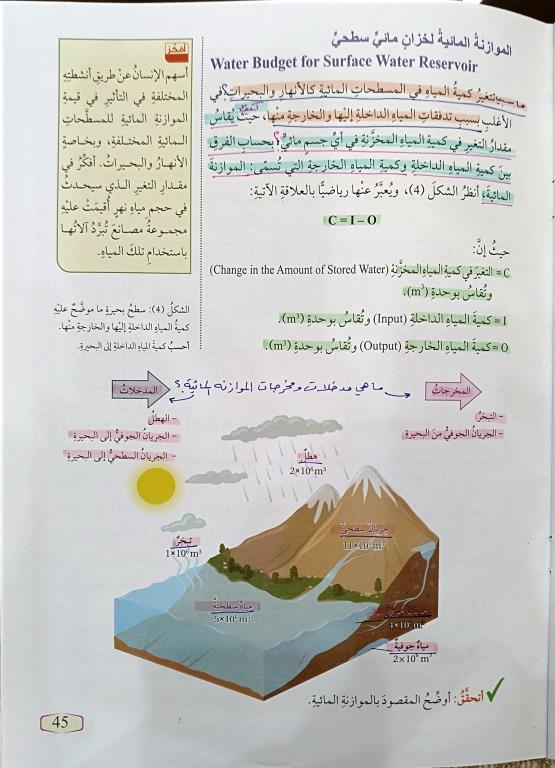 الموازنةُ المائيةُ لخزانٍ مائيٍّ سطحيٍّ
Water Budget for Surface Water Reservoir
تتغيرُ كميةُ المياهِ في المسطحاتِ المائيةِ كالأنهارِ والبحيراتِ؟ في
الأغلبِ بسببِ تدفقاتِ المياهِ الداخلةِ إليْها والخارجةِ منْها، حيثُ يُقاسُ
مقدارُ التغيرِ في كميةِ المياهِ المخزَّنةِ في أيِّ جسمٍ مائيٍّ؟ بحسابِ الفرقِ
بينَ كميةِ المياهِ الداخلةِ وكميةِ المياهِ الخارجةِ التي تُسمّى: الموازنةَ
المائيةَ، أنظرُ الشكلَ (4)، ويُعبَّرُ عنْها رياضيًّا بالعلاقةِ الآتيةِ:
C = I – O
حيثُ إنَّ:
C = التغيرُ في كميةِ المياهِ المخزَّنةِ (Change in the Amount of Stored Water)
وتُقاسُ بوحدةِ (m³).
I = كميةُ المياهِ الداخلةِ (Input) وتُقاسُ بوحدةِ (m³).
O = كميةُ المياهِ الخارجةِ (Output) وتُقاسُ بوحدةِ (m³).
أفكّر
أسهمَ الإنسانُ عنْ طريقِ أنشطتِهِ
المختلفةِ في التأثيرِ في قيمةِ
الموازنةِ المائيةِ للمسطَّحاتِ
المائيةِ المختلفةِ، وبخاصةٍ
الأنهارُ والبحيراتُ. أفكّرُ في
مقدارِ التغيرِ الذي سيحدثُ
في حجمِ مياهِ نهرٍ أُقيمَتْ عليْهِ
مجموعةُ مصانعَ تُبرَّدُ آلاتُها
باستخدامِ تلكَ المياهِ.
الشكلُ (4): سطحُ بحيرةٍ ما موضَّحٌ عليْهِ
كميةُ المياهِ الداخلةِ إليْها والخارجةِ منْها.
أحسبُ كميةَ المياهِ الداخلةِ إلى البحيرةِ.
ما هي مدخلات ومخرجات الموازنة المائية؟
المخرجاتُ
– التبخرُ
– الجريانُ الجوفيُّ منَ البحيرةِ
المدخلاتُ
– الهطلُ
– الجريانُ الجوفيُّ إلى البحيرةِ
– الجريانُ السطحيُّ إلى البحيرةِ
هطلٌ
2×10⁶m³
جريانٌ سطحيٌّ
تبخرٌ
1×10⁶m³
مياهٌ سطحيةٌ
مياهٌ جوفيةٌ
أتحقَّقُ: أوضِّحُ المقصودَ بالموازنةِ المائيةِ.
45